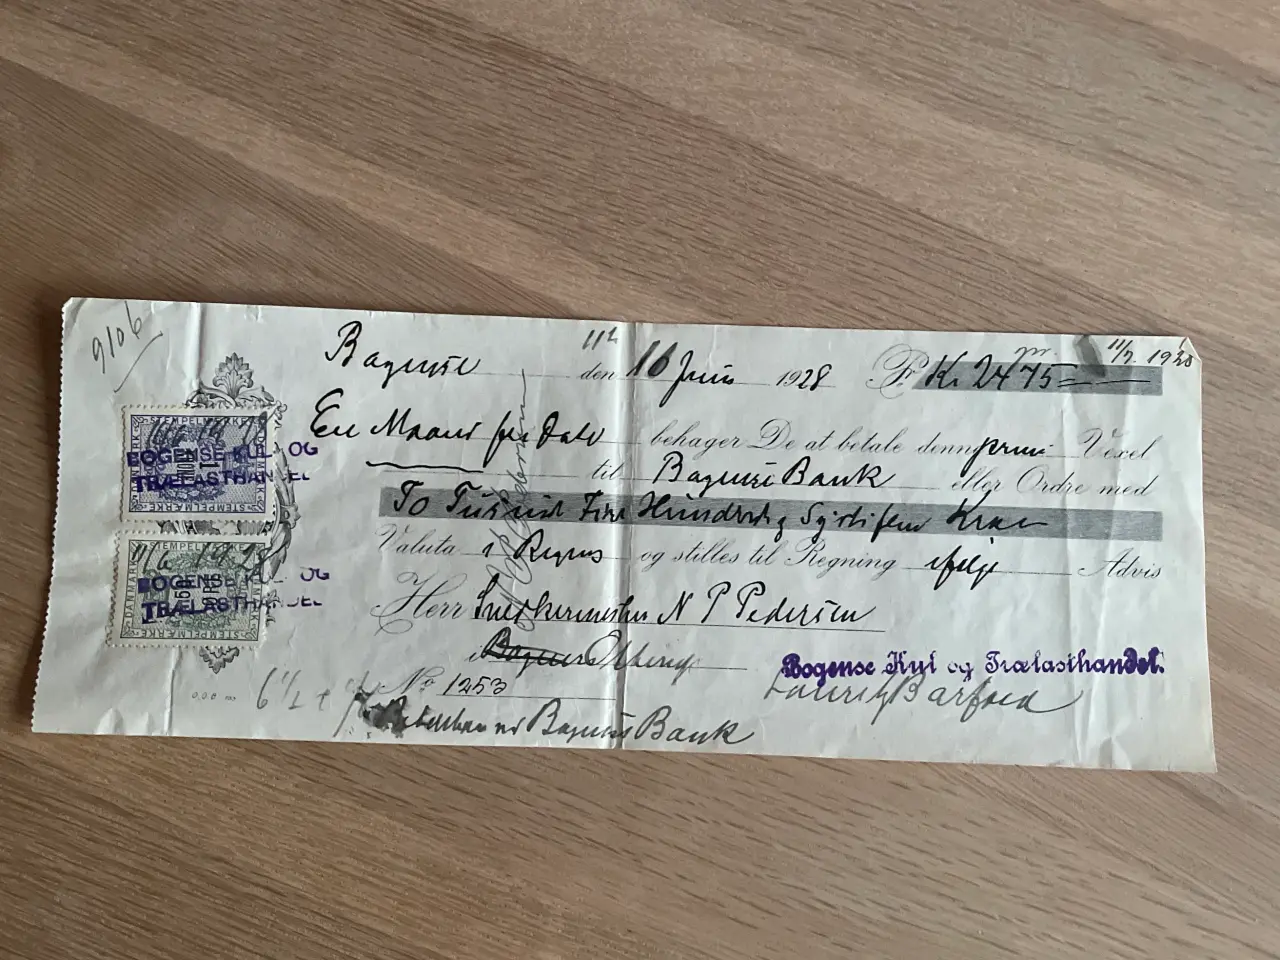 9106
Bogense den 11te 16 Juni 1928 Pr. Kr 2475 = pr. 11/7 1928
En Maaned fra Dato behager De at betale denne prima Vexel
til Bogense Bank eller Ordre med
To Tusind Fire Hundrede og Syvtifem Kroner
Valuta i Regning og stilles til Regning ifølge Advis
Herr Snedkermester N P Pedersen
i Bogense
No 1253
Bogense Kul og Trælasthandel.
Lauritz Barfoed
Bogense Bank
6 1/2 +
STEMPELMÆRKE
DANMARK
16/6 19 28
BOGENSE KUL OG
TRÆLASTHANDEL
1
KRONE
STEMPELMÆRKE
STEMPELMÆRKE
DANMARK
11/6 1928
BOGENSE KUL OG
TRÆLASTHANDEL
STEMPELMÆRKE